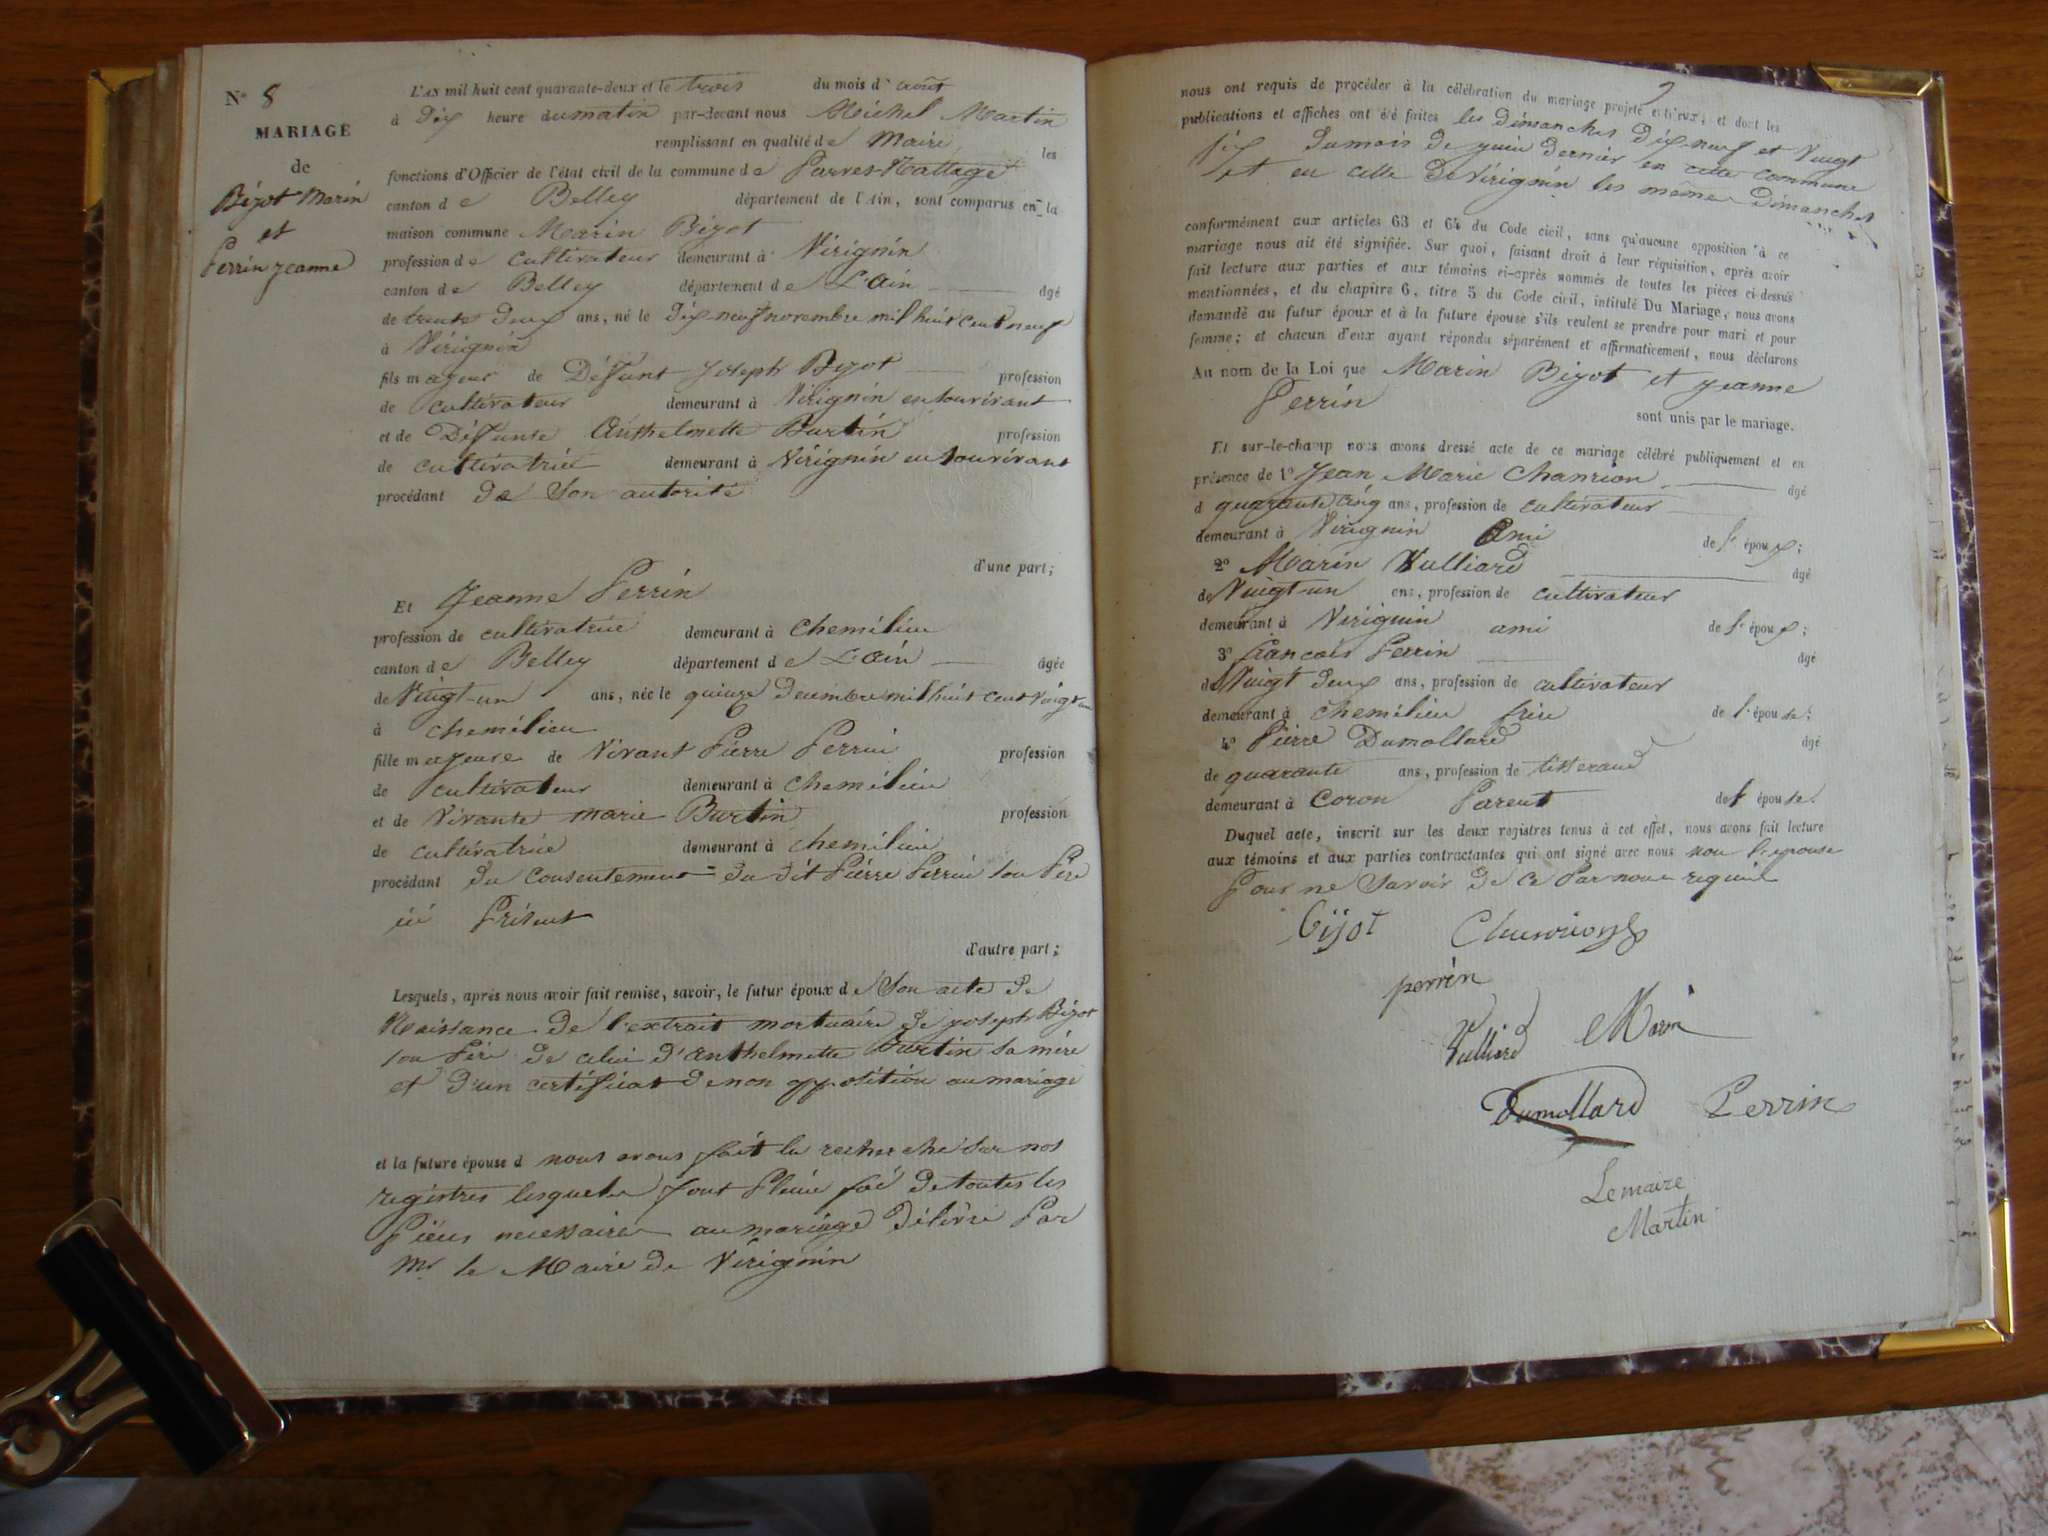 N° 8
MARIAGE
de
Bizot Marin
et
Perrin jeanne
L'AN mil huit cent quarante-deux et le trois du mois d'août
à Dix heure du matin par-devant nous Michel Martin
remplissant en qualité de Maire les
fonctions d'Officier de l'état civil de la commune de Parves-Nattages
canton de Belley département de l'Ain, sont comparus en la
maison commune Marin Bizot
profession de cultivateur demeurant à Virignin
canton de Belley département de L'Ain âgé
de trente Deux ans, né le Dix neuf novembre mil huit cent neuf
à Virignin
fils majeur de Deffunt Joseph Bizot profession
de cultivateur demeurant à Virignin en sou vivant
et de Deffunte Anthelmette Burtin profession
de cultivatrice demeurant à Virignin en sou vivant
procédant de Son autorité
d'une part;
Et Jeanne Perrin
profession de cultivatrice demeurant à chemilieu
canton de Belley département de L'Ain âgée
de Vingt-un ans, née le quinze Decembre mil huit cent vingt
à chemilieu
fille majeure de Vivant Pierre Perrin profession
de cultivateur demeurant à chemilieu
et de Vivante marie Burtin profession
de cultivatrice demeurant à chemilieu
procédant du consentement du dit Pierre Perrin sou Père
ici Présent
d'autre part;
Lesquels, après nous avoir fait remise, savoir, le futur époux de Son acte de
Naissance de l'extrait mortuaire de joseph Bizot
sou Père de celui d'anthelmette Burtin sa mère
et d'un certificat de non opposition au mariage
et la future épouse d nous avons fait la recherche sur nos
registres lesquels font Pleine foi de toutes les
Pièces necessaires au mariage Délivré Par
Mr le Maire de Virignin
nous ont requis de procéder à la célébration du mariage projeté entr'eux; et dont les
publications et affiches ont été faites les Dimanches Dix-neuf et Vingt
six du mois de juin Dernier en cette commune
et en celle de Virignin les même Dimanches
conformément aux articles 63 et 64 du Code civil, sans qu'aucune opposition à ce
mariage nous ait été signifiée. Sur quoi, faisant droit à leur réquisition, après avoir
fait lecture aux parties et aux témoins ci-après nommés de toutes les pièces ci-dessus
mentionnées, et du chapitre 6, titre 5 du Code civil, intitulé Du Mariage, nous avons
demandé au futur époux et à la future épouse s'ils veulent se prendre pour mari et pour
femme; et chacun d'eux ayant répondu séparément et affirmativement, nous déclarons
Au nom de la Loi que Marin Bizot et jeanne
Perrin
sont unis par le mariage.
Et sur-le-champ nous avons dressé acte de ce mariage célébré publiquement et en
présence de 1° Jean Marie Chanrion âgé
d quarante cinq ans, profession de cultivateur
demeurant à Virignin Ami de l'époux;
2° Marin Vulliard âgé
de Vingt-un ans, profession de cultivateur
demeurant à Virignin ami de l'époux;
3° francois Perrin âgé
de Vingt deux ans, profession de cultivateur
demeurant à chemilieu frère de l'épouse;
4° Pierre Dumollard âgé
de quarante ans, profession de tisserand
demeurant à Coron Parent de l'épouse.
Duquel acte, inscrit sur les deux registres tenus à cet effet, nous avons fait lecture
aux témoins et aux parties contractantes qui ont signé avec nous non l'epouse
Pour ne Savoir de ce Par nous requise
bijot Chanrion
perrin
Vulliard Marin
Dumollard Perrin
Lemaire
Martin